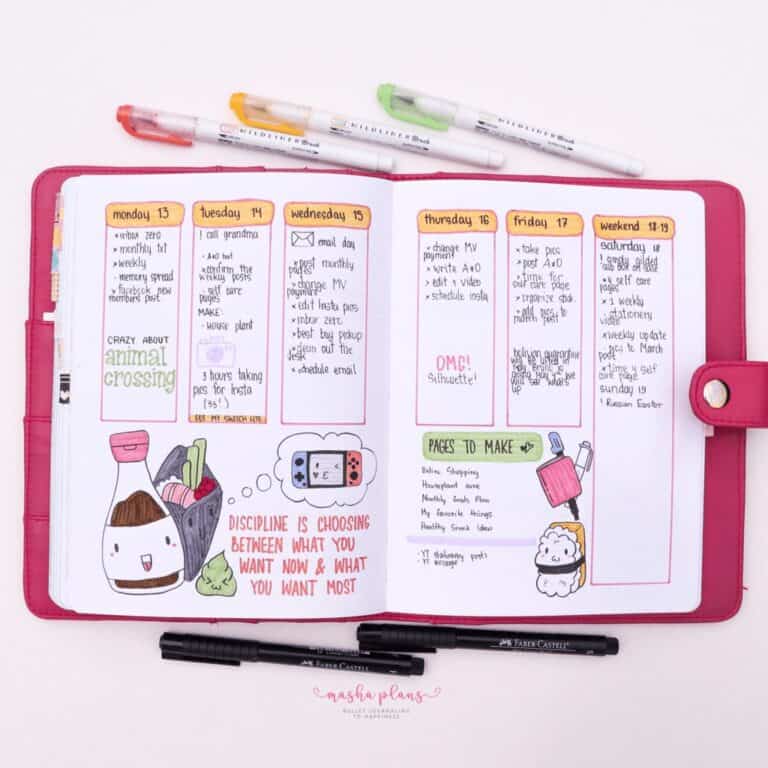 MILDLINER Brush
MILDLINER Brush
MILDLINER Brush
monday 13
×inbox zero
×monthly txt
×weekly
- memory spread
×facebook new
members post
CRAZY ABOUT
animal
crossing
tuesday 14
! call grandma
×confirm the
weekly posts
- self care
pages
MAKE:
- house plant
3 hours taking
pics for Insta
(35!)
GOT MY SWITCH LITE
wednesday 15
email day
×post monthly
pages
×change MV
payment
×edit Insta pics
×inbox zero
×best buy pickup
×clean out the
desk
×schedule email
DISCIPLINE IS CHOOSING
BETWEEN WHAT YOU
WANT NOW & WHAT
YOU WANT MOST
thursday 16
×change MV
payment
× write A&O
> edit a video
×schedule insta
OMG!
Silhouette!
friday 17
×take pics
×post A&O
>time for
self care page
×organize
×add pics to
march post
weekend 18-19
saturday 18
×4 self care
pages
×1 weekly
- stationery
video
×weekly update
- pics to March
post
×time 4 self
care page
sunday 19
! Russian Easter
PAGES TO MAKE
Online Shopping
Houseplant care
Monthly Goals Plan
My favorite things
Healthy Snack Ideas
- YT stationery posts
FABER-CASTELL
FABER-CASTELL
masha plans
BULLET JOURNALING
TO HAPPINESS